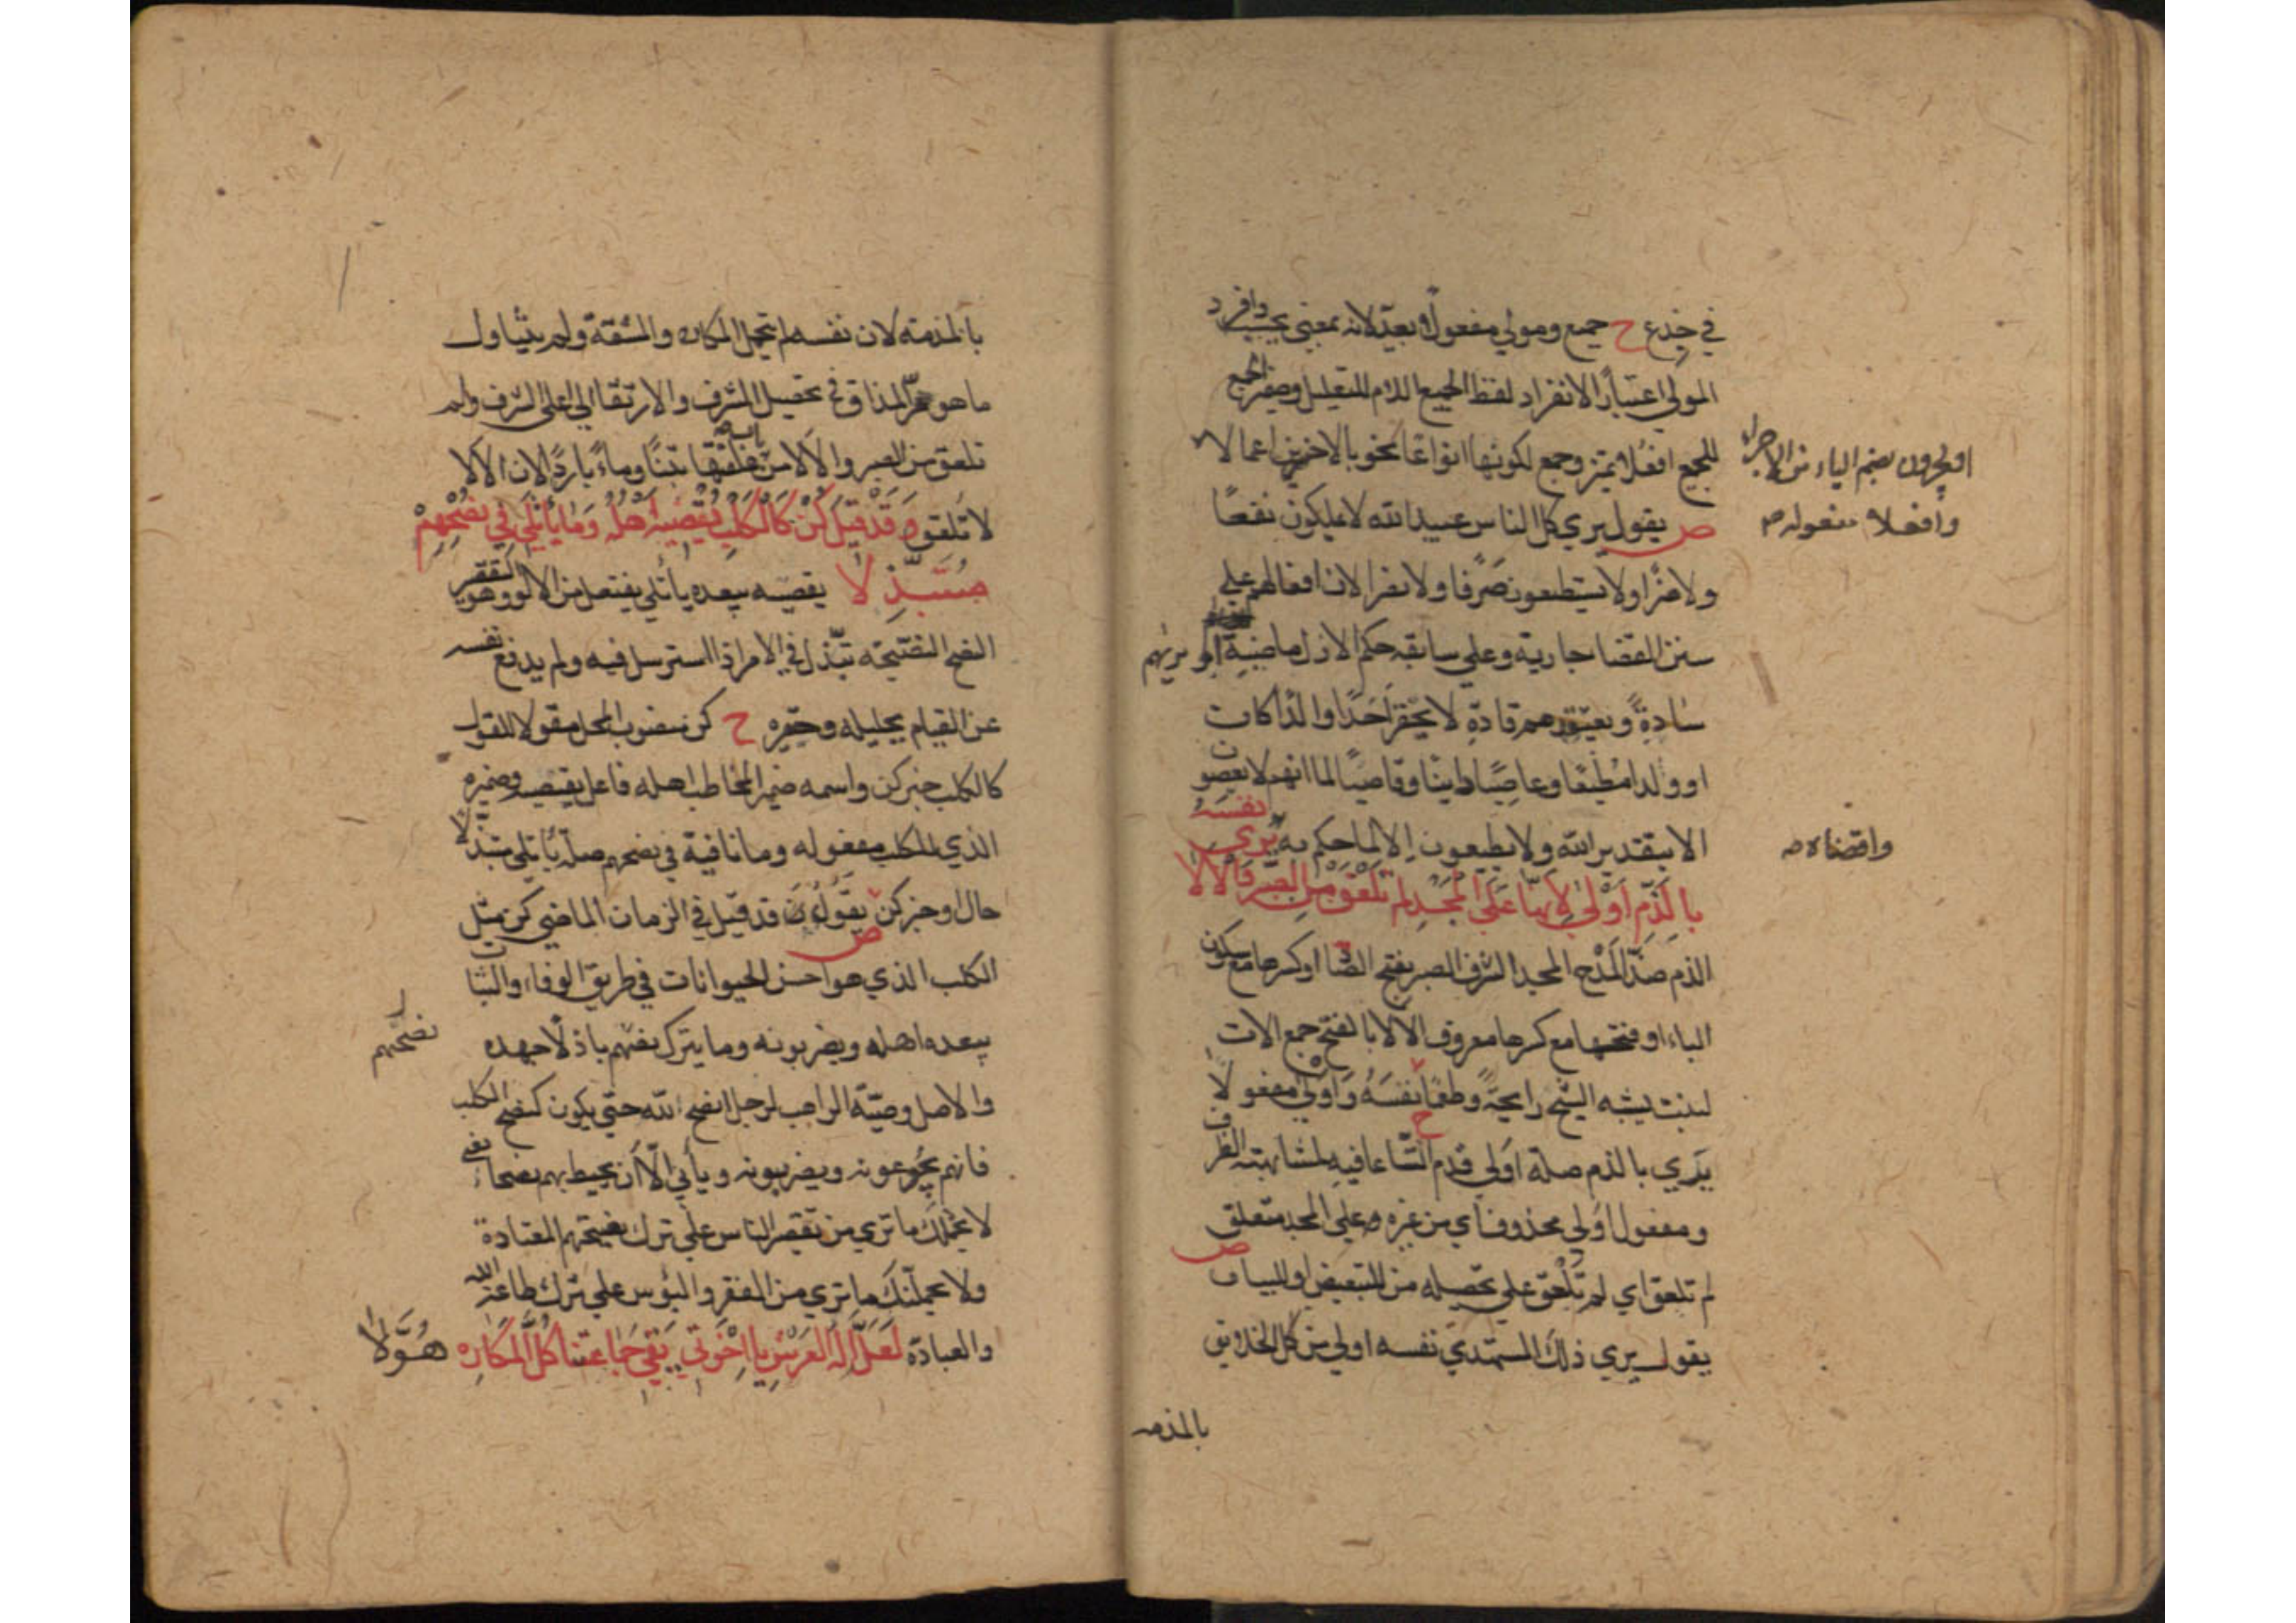 في خدع ح جميع ومولي مفعولا بعيد لانه بمعني يحسب وافرد
المولي اعتبارا لانفراد لفظ الجميع اللام للتعليل وضمير الجمع
للجميع افعلا تميز وجمع لكونها انواعا نحو بالاخرين اعمالا
او يجرون بضم الياء من الاجراء
وافعلا مفعوله صه
ص يقول يري كل الناس عبيد الله لا يملكون نفعا
ولا ضرا ولا يستطيعون صرفا ولا نفرا لان افعالهم علي
سنن القضا جارية وعلي سابقة حكم الازل ماضية او يريهم
سادة و قادة لا يحقر احدا وان كانت
او ولدا مطيعا وعاصيا دانيا وقاصيا لما انهم لا يعصون
الا بتقدير الله ولا يطيعون الا لما حكم به يري نفسه
واقضاه صه
بالذم اولي لانها علي المجد لم تلعق من الصبر والالا
الذم ضد المدح المجد الشرف الصبر بفتح الصاد او كسرها مع سكون
الباء او فتحها مع كسرها معروف الالا بالفتح جمع الات
لنبت يشبه الشيح رايحة وطعما ح نفسه واولي مفعولا
يري بالذم صلة اولي قدم اتساعا فيه لمشابهته الظرف
ومفعول اولي محذوف اي من غيره وعلي المجد متعلق
لم تلعق اي لم تلعق علي تحصيله من للتبعيض او للبيان ص
يقول يري ذلك المستهدي نفسه اولي من كل الخلايق
بالمذمه
بالمذمة لان نفسه لم تحمل المكاره والمشقة ولم يتناول
ما هو مر المذاق في تحصيل الشرف والارتقا الي اعلي الشرف ولم
تلعق من الصبر والالا من باب علفتها تبنا وماء باردا لان الالا
لا تلعق وقد قيل كن كالكلب يقصيه اهله وما يأتلي في نصحهم
متبذلا يقصيه يبعده يأتلي يفتعل من الالو وهو التقصير
النصح النصيحة تبذل في الامر اذا استرسل فيه ولم يدفع نفسه
عن القيام بجليله وحقيره ح كن منصوب المحل مقولا للقول
كالكلب خبر كن واسمه ضمير المخاطب اهله فاعل يقصيه وضميره
الذي للكلب مفعوله وما نافية في نصحهم صلة يأتلي متبذلا
حال او خبر كن ص يقول قد قيل في الزمان الماضي كن مثل
الكلب الذي هو احسن الحيوانات في طريق الوفاء والثبات
يبعده اهله ويضربونه وما يترك نصحهم باذلا جهده
نصحهم
والاصل وصية الراهب لرجل انصح لله حتي يكون كنصح الكلب
فانهم يجوعونه ويضربونه ويأبي الا ان يحيط بهم نصحا يعني
لا يحملك ما تري من تقصير الناس علي ترك نصيحتهم المعتادة
ولا يحملنك ما تري من الفقر والبؤس علي ترك طاعة الله
والعبادة لعل اله العرش يا اخوتي يقي جماعتنا كل المكاره هولا